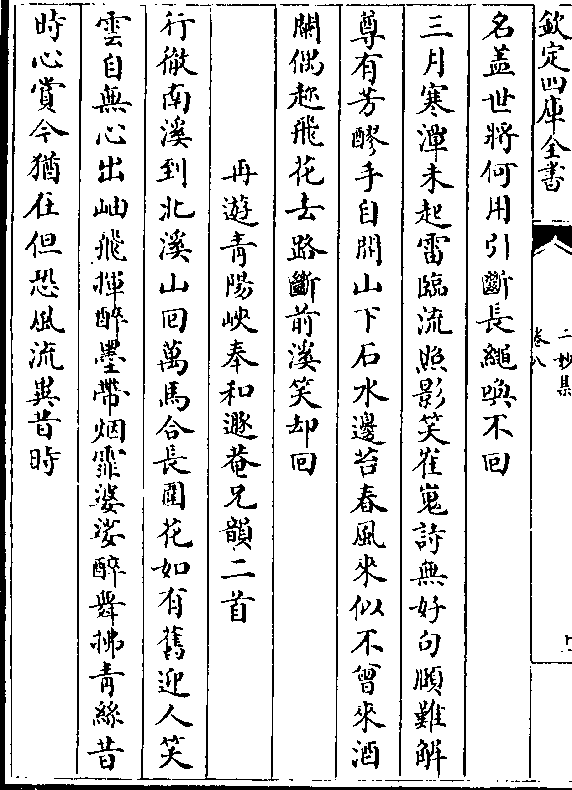 欽定四庫全書
二妙集
卷八
名蓋世將何用引斷長繩喚不回
三月寒潭未起雷臨流照影笑崔嵬詩無好句頤難解
尊有芳醪手自開山下石水邊苔春風來似不曾來酒
闌偶趁飛花去路斷前溪笑却回
再遊青陽峽奉和遯菴兄韻二首
行徹南溪到北溪山回萬馬合長圍花如有舊迎人笑
雲自無心出岫飛揮醉墨帶烟霏婆娑醉舞拂青絲昔
時心賞今猶在但恐風流異昔時